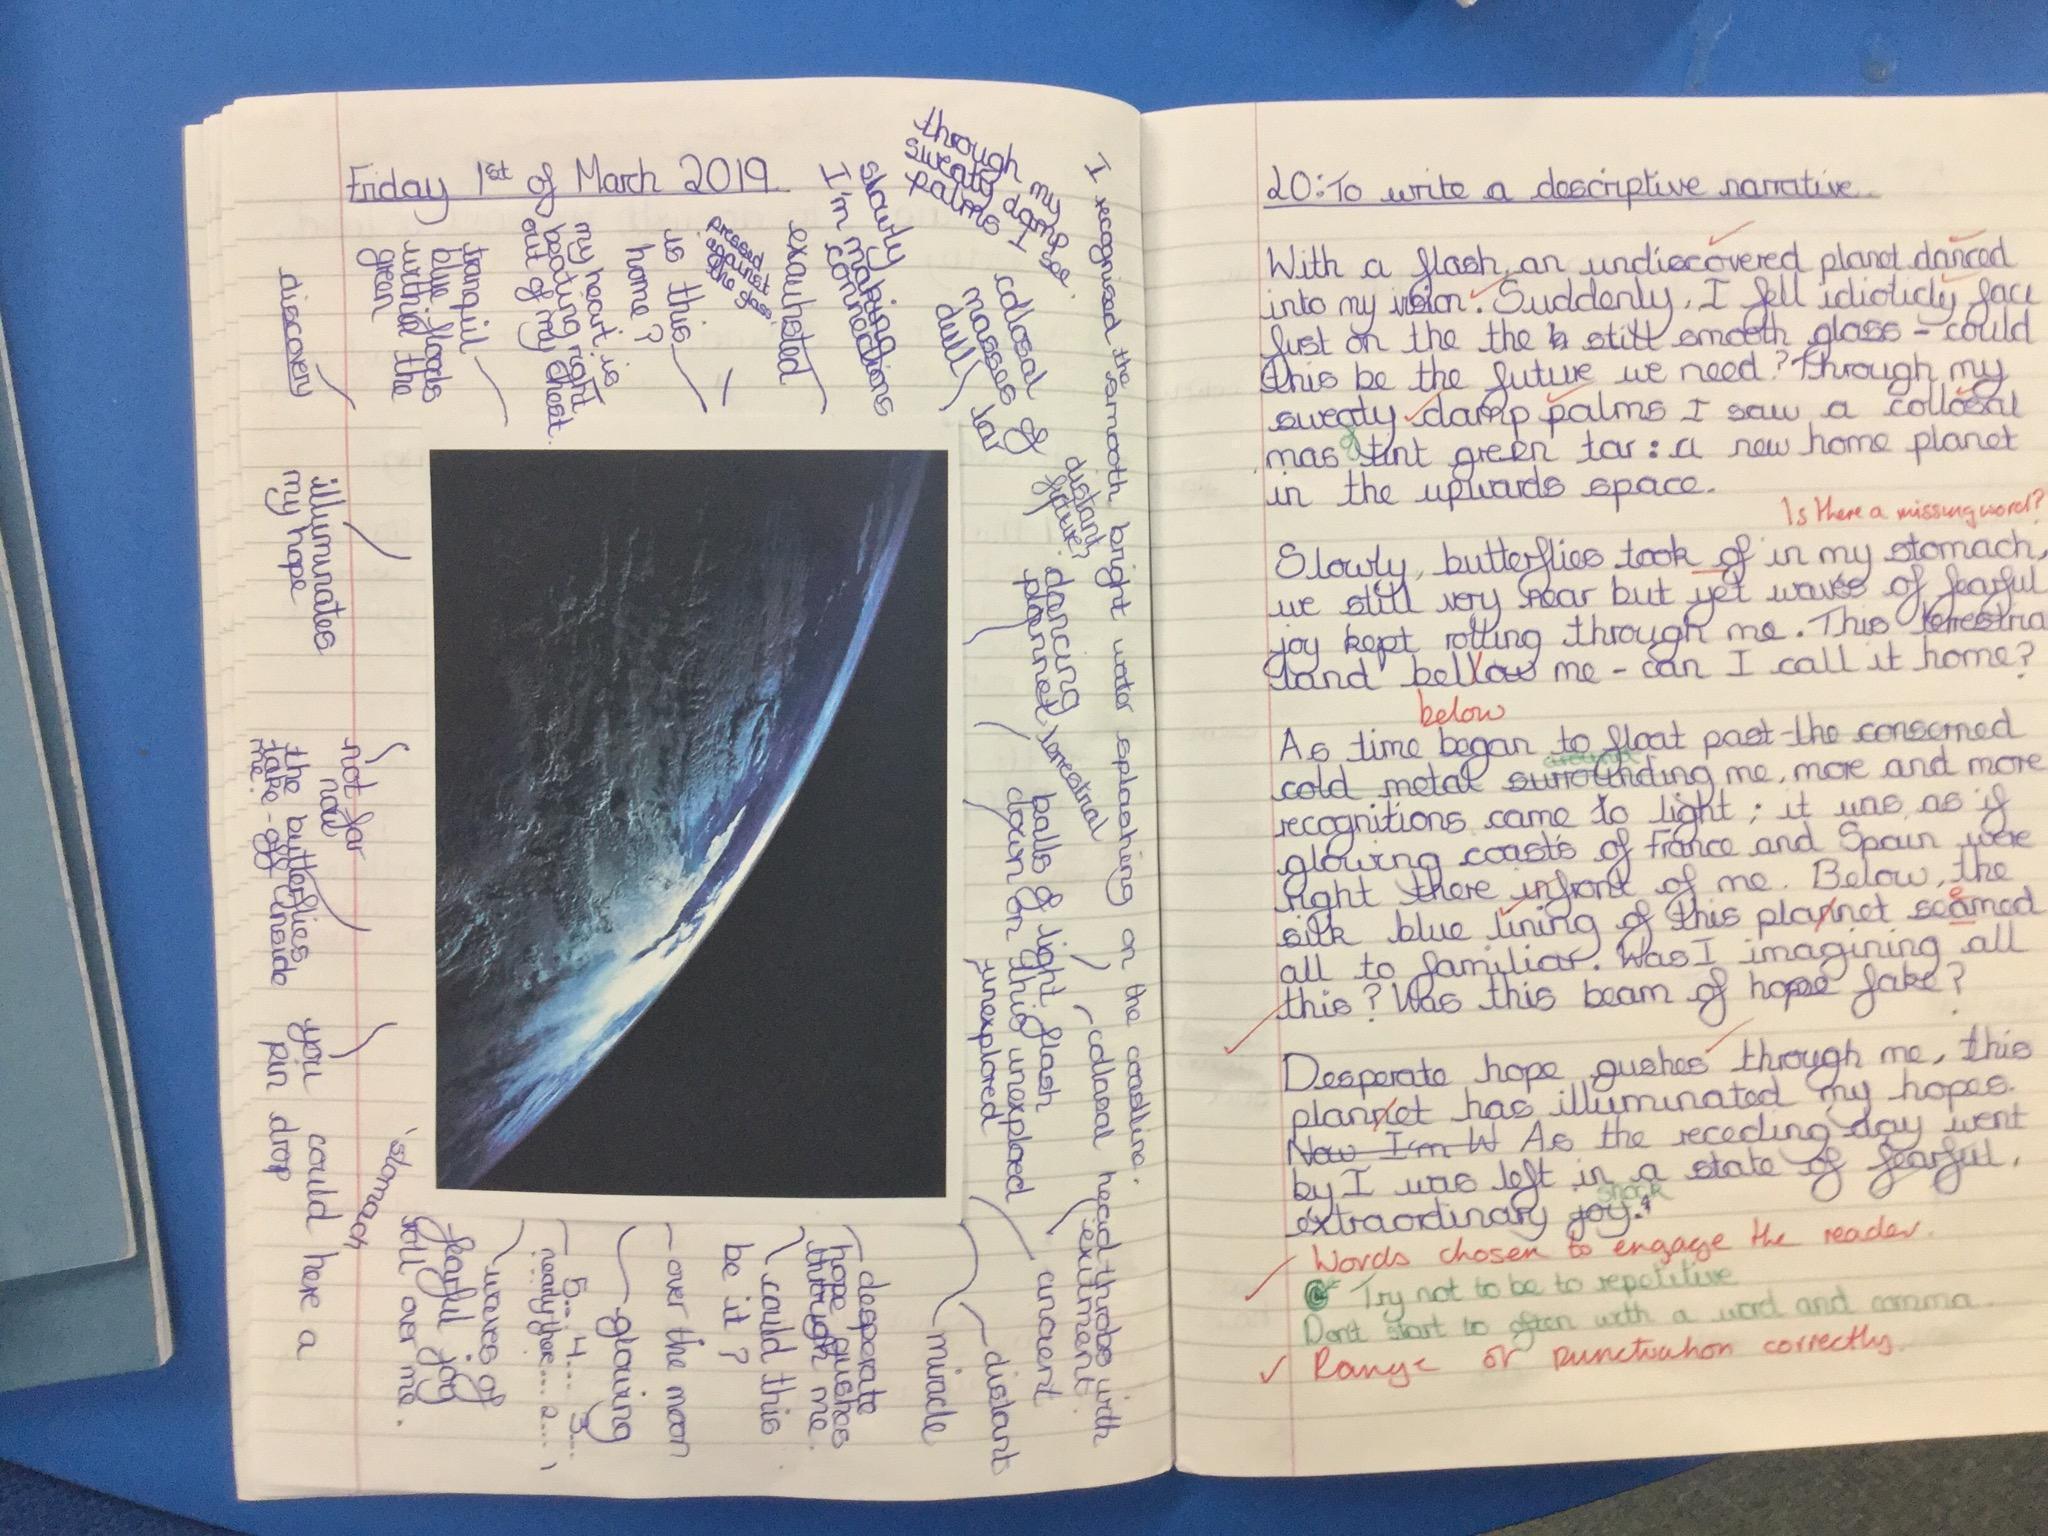 Friday 1st of March 2019
discovery
tranquil
blue floods
within the
green
my heart is
beating right
out of my chest.
is this
home?
pressed
against
the
exauhsted
slowly
I'm making
connections
through my
sweaty damp
palms I
collosal
masses of
dull
tar
I recognised the smooth bright water splashing on the coastline.
distant
future
dancing
plannet
terrestrial
balls of light flash
down on this unexplored
unexplored
collasal
head throbs with
exitment.
ancient
distant
miracle
desparate
hope gushes
through me.
could this
be it?
over the moon
glowing
5... 4... 3...
nearly there... 2... 1
waves of
fearful joy
roll over me.
'stomach
you could here a
pin drop
not far
now
the butterflies
take-off inside
me.
illuminates
my hope
20: To write a descriptive narrative.
With a flash, an undiscovered planet danced
into my vision. Suddenly, I fell idioticly face
fust on the the still smooth glass - could
this be the future we need? Through my
sweaty damp palms I saw a collosal
mas of tint green tar: a new home planet
in the upwards space.
Is there a missing word?
Slowly, butterflies took of in my stomach,
we still very near but yet waves of fearful
joy kept rolling through me. This terrestria
land bellow me - can I call it home?
below
As time began to float past the conserned
around
cold metal surrounding me, more and more
recognitions came to light; it was as if
glowing coasts of France and Spain were
right there infront of me. Below, the
e
silk blue lining of this plannet seamed
all to familiar. Was I imagining all
this? Was this beam of hope fake?
Desperate hope gushes through me, this
plannet has illuminated my hopes.
Now I'm W As the receding day went
by I was left in a state of fearful,
shock
extraordinary joy.
Words chosen to engage the reader.
Try not to be to repetitive
Don't start to often with a word and comma.
Range of punctuation correctly.